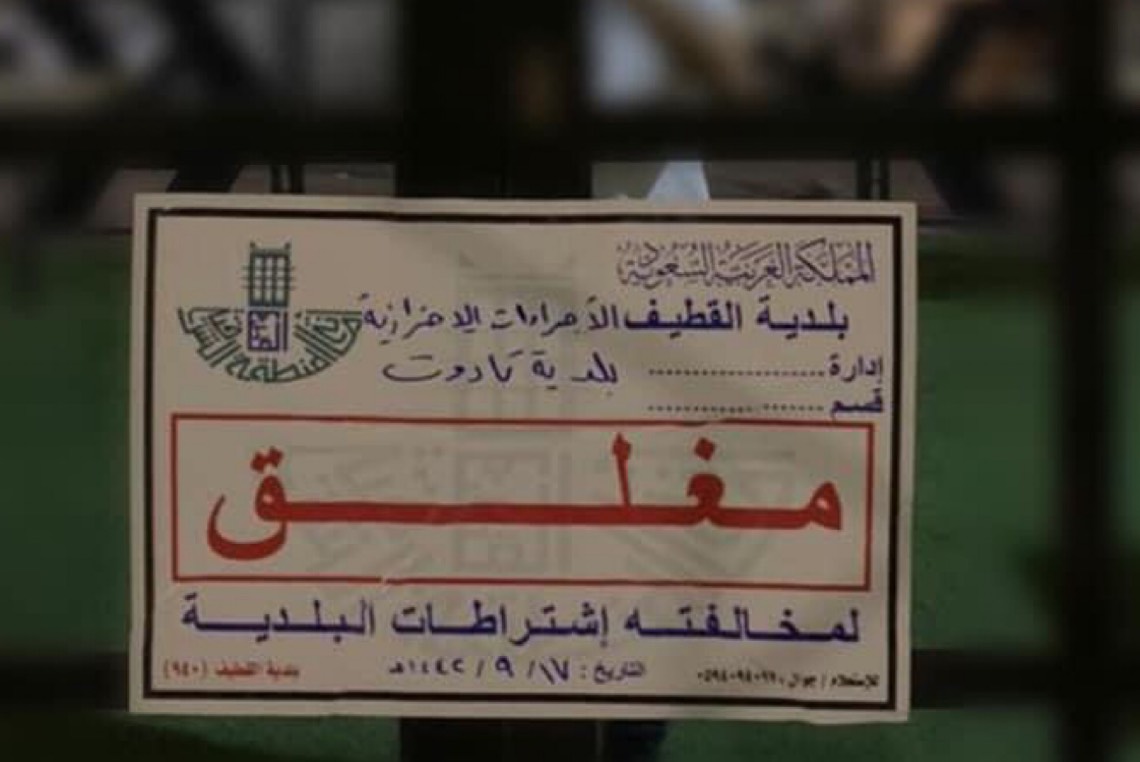 المملكة العربية السعودية
بلدية القطيف الأجراءات الإحترازية
إدارة ........................ بلدية تاروت
قسم ........................
مغلق
لمخالفته إشتراطات البلدية
للإستعلام / جوال : ٠٥٩٤٠٩٤٠٩٩ التاريخ : ١٧ / ٩ / ١٤٤٢هـ بلدية القطيف (٩٤٠)
أمانة المنطقة الشرقية